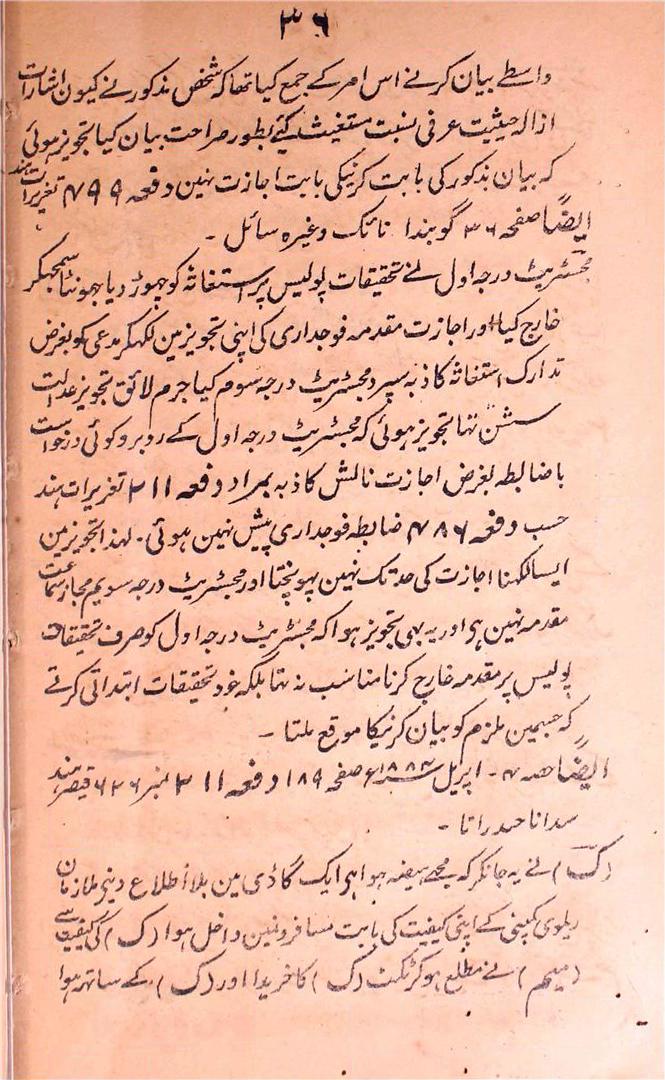 ۳۶
واسطے بیان کرنے اس امر کے جمع کیا تھا کہ شخص مذکور نے کیون اشارات
ازالہ حیثیت عرفی بنسبت مستغیث کئے بطور صراحت بیان کیا تجویز ہوئی
کہ بیان مذکور کی بابت کرنیکی بابت اجازت نہین دفعہ ۴۹۹ تعزیرات ہند
ایضًا صفحہ ۳۶ گوبندا نانک وغیرہ سائل ۔
مجسٹریٹ درجہ اول نے تحقیقات پولیس پر استغاثہ کو چھوڑ دیا جھونٹا سمجھکر
خارج کیا اور اجازت مقدمہ فوجداری کی اپنی تجویز مین لکھکر مدعی کو بغرض
تدارک استغاثہ کاذبہ سپرد مجسٹریٹ درجہ سوم کیا جرم لائق تجویز عدالت
سشن تھا تجویز ہوئی کہ مجسٹریٹ درجہ اول کے روبرو کوئی درخواست
باضابطہ بغرض اجازت نالش کاذبہ بمراد دفعہ ۲۱۱ تعزیرات ہند
حسب دفعہ ۴۸۶ ضابطہ فوجداری پیش نہین ہوئی ۔ لہذا تجویز مین
ایسا لکھنا اجازت کی حد تک نہین پہونچتا اور مجسٹریٹ درجہ سویم مجاز سماعت
مقدمہ نہین ہی اور یہ بھی تجویز ہوا کہ مجسٹریٹ درجہ اول کو صرف تحقیقات
پولیس پر مقدمہ خارج کرنا مناسب نہ تھا بلکہ خود تحقیقات ابتدائی کرتے
کہ جسمین ملزم کو بیان کرنیکا موقع ملتا ۔
ایضًا حصہ ۴ ۔ اپریل ۱۸۸۴ء صفحہ ۱۸۹ دفعہ ۲۱۱ نمبر ۶۲۶ قیصر ہند
(ک) نے یہ جانکر کہ مجھے ہیضہ ہوا ہی ایک گاڈی مین بلا اطلاع دینے ملازمان
ریلوی کمپنی کے اپنی کیفیت کی بابت مسافرونمین داخل ہوا (ک) کی کیفیت سے
(میم) نے مطلع ہو کر ٹکٹ (ک) کا خریدا اور (ک) کے ساتھ ہوا